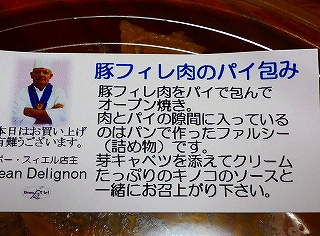 豚フィレ肉のパイ包み
豚フィレ肉をパイで包んで
オーブン焼き。
肉とパイの隙間に入っている
のはパンで作ったファルシー
(詰め物)です。
芽キャベツを添えてクリーム
たっぷりのキノコのソースと
一緒にお召上がり下さい。
本日はお買い上げ
有難うございます。
ボー・スィエル店主
ean Delignon